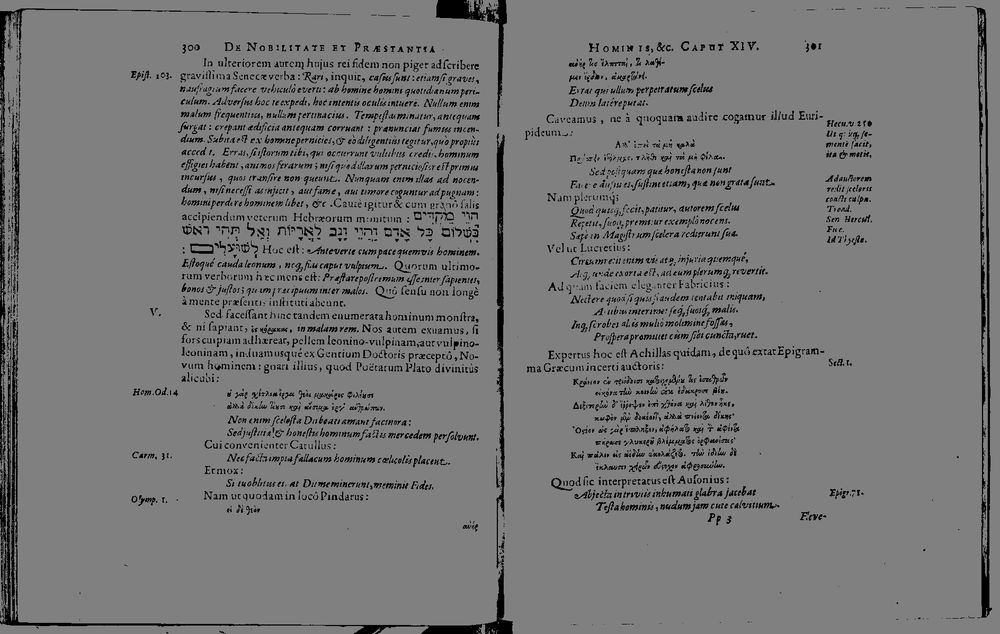 300 DE NOBILITATE ET PRÆSTANTIA
In ulteriorem autem hujus rei fidem non piget adscribere
Epist. 103. gravissima Senecæ verba: Rari, inquit, casus sunt: etiamsi graves,
naufragium facere vehiculo everti: ab homine homini quotidianum peri-
culum. Adversus hoc te expedi, hoc intentis oculis intuere. Nullum enim
malum frequentius, nullum pertinacius. Tempestas minatur, antequam
surgat: crepant ædificia antequam corruant: prænunciat fumus incen-
dium. Subita est ex homine pernicies, & eo diligentius tegitur, quo propius
accedit. Erras, si istorum tibi, qui occurrunt vultibus credis, hominum
effigies habent, animos ferarum; nisi quod illarum perniciosior est primus
incursus, quos transire non queunt. Nunquam enim illas ad nocen-
dum, nisi necessitas injicit, aut fame, aut timore coguntur ad pugnam:
homini perdere hominem libet, &c. Caute igitur & cum grano salis
accipiendum veterum Hebræorum monitum: הוי מקדים
בשלום כל אדם והוי זנב לאריות ואל תהי ראש
לשועלים: Hoc est: Anteverte cum pace quemvis hominem.
Estoque cauda leonum, neq, sis caput vulpium. Quorum ultimo-
rum verborum hæc mens est: Præstare postremum esse inter sapientes,
bonos & justos; quam præcipuum inter malos. Quô sensu non longè
à mente præsentis instituti abeunt.
V. Sed facessant hinc tandem enumerata hominum monstra,
& ni sapiant, ἐς κόρακας, in malam rem. Nos autem exuamus, si
fors cuipiam adhæreat, pellem leonino-vulpinam, aut vulpino-
leoninam, induamusque ex Gentium Doctoris præceptô, No-
vum hominem: gnari illius, quod Poëtarum Plato divinitùs
alicubi:
Hom. Od. 14
Non enim scelesta Dii beati amant facinora:
Sed justitia & honestis hominum factis mercedem persolvunt.
Cui convenienter Catullus:
Carm. 31. Nec facta impia fallacum hominum cœlicolis placent.
Et mox:
Si tu oblitus es. at Dii meminerunt, meminit Fides.
Olymp. 1. Nam ut quodam in locô Pindarus:
εἰ δὲ θεὸν
ανὴρ
HOMINIS, &c. CAPUT XIV. 301
ανὴρ τις ἔλπεται, τι λαθέ-
μεν ἔρδων, ἁμαρτάνει.
Errat qui ullum perpetratum scelus
Deum latere putat.
Caveamus, ne à quoquam audire cogamur illud Euri-
pideum: Hecu. v. 250
Sed postquam quæ honesta non sunt
Facere ausus es, sustine etiam, quæ non grata sunt.
Nam plerumq;
Quod quisq, fecit, patitur, autorem scelus
Repetit, suoq, premitur exemplo nocens.
Sæpe in Magistrum scelera redierunt sua.
Vel ut Lucretius:
Circumretit enim vis atq, injuria quemque,
Atq, unde exorta est, ad eum plerumq, revertit.
Ad quam faciem eleganter Fabricius:
Nectere quod si quis laudem tentabit iniquam,
Artibus interimet seq, suosq, malis.
Inq, scrobes aliis multo molimine fossas,
Prospera promittet cum sibi cuncta, ruet.
Expertus hoc est Achillas quidam, de quô extat Epigram-
ma Græcum incerti auctoris: Sect. 1.
Quod sic interpretatus est Ausonius:
Abjecta in triviis inhumati glabra jacebat Epigr. 71.
Testa hominis, nudum jam cute calvitium.
Pp 3 Fleve-